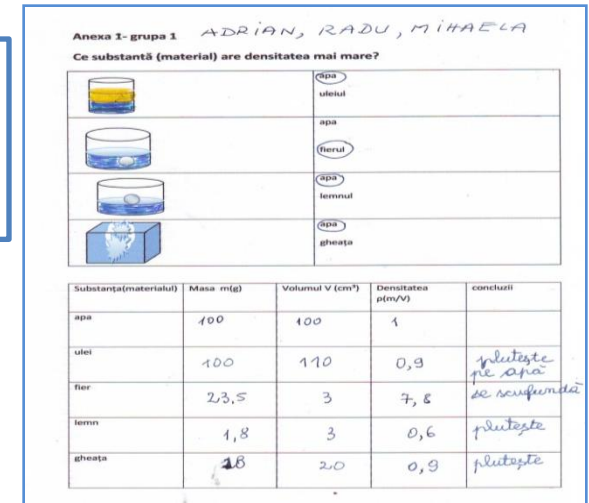 Anexa 1- grupa 1 ADRIAN, RADU, MIHAELA
Ce substantă (material) are densitatea mai mare?
apa
uleiul
apa
fierul
apa
lemnul
apa
gheața
Substanța(materialul) Masa m(g) Volumul V (cm³) Densitatea ρ(m/V) concluzii
apa 100 100 1
ulei 100 110 0,9 plutește pe apă
fier 23,5 3 7,8 se scufundă
lemn 1,8 3 0,6 plutește
gheața 18 20 0,9 plutește